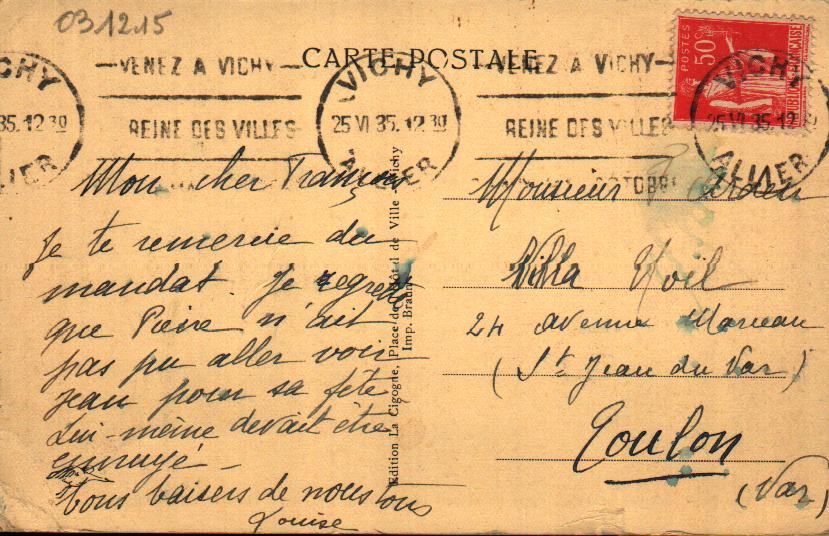 03.12.15
CARTE POSTALE
VENEZ A VICHY
REINE DES VILLES
VICHY
25 VI 35. 12 30
ALLIER
VENEZ A VICHY
REINE DES VILLES
OCTOBRE
VICHY
25 VI 35. 12
ALLIER
VICHY
35. 12 30
LIER
POSTES
50c
FRANÇAISE
Mon cher François
Je te remercie du
mandat. Je regrette
que Pierre n'ait
pas pu aller voir
Jean pour sa fête
Lui-même devait être
ennuyé _
Bons baisers de nous tous
Louise
Edition La Cigogne, Place de l'Hôtel de Ville Vichy
Imp. Braun
Monsieur
Villa
24 avenue Marceau
(St Jean du Var)
Toulon
(Var)